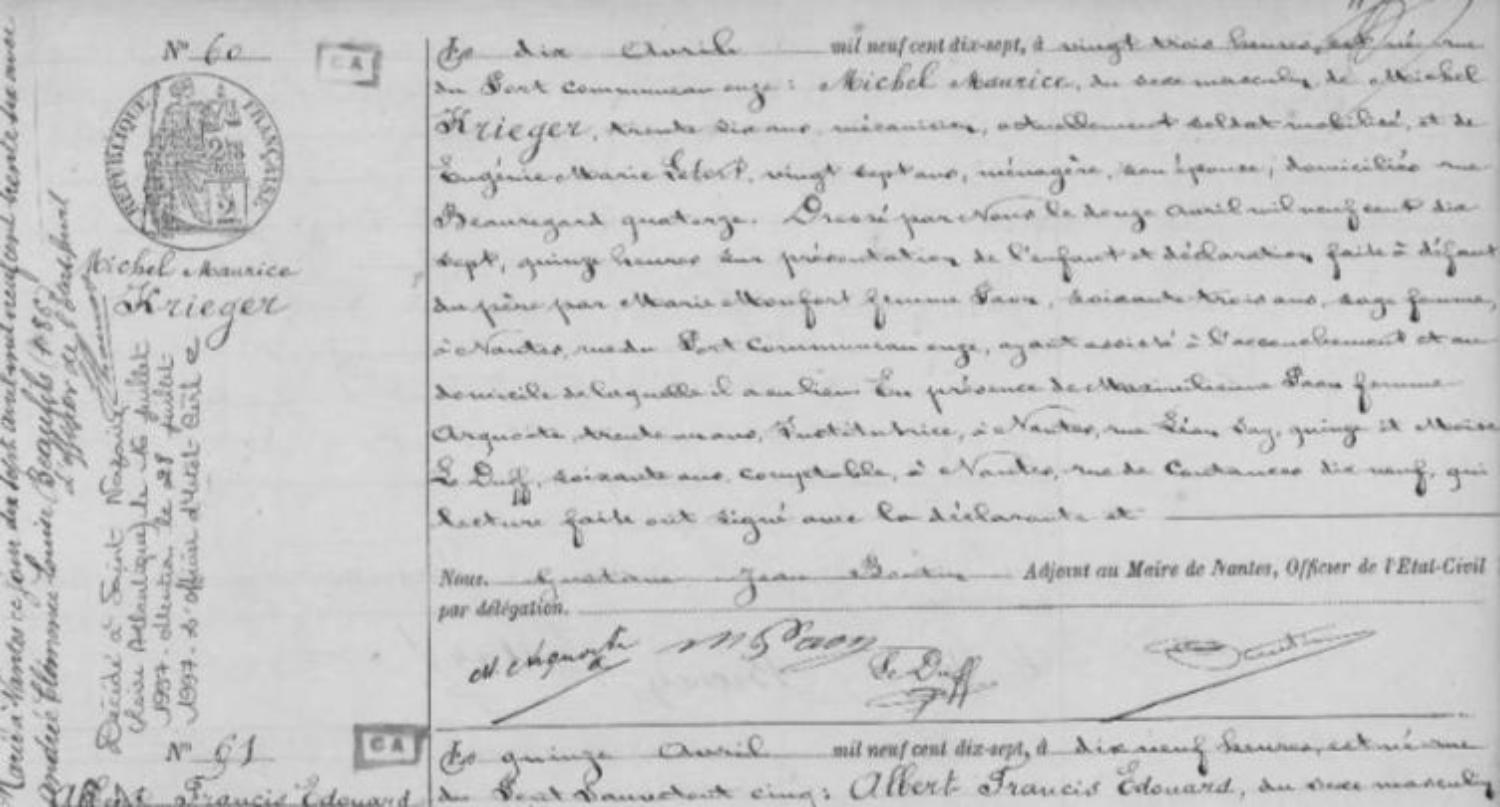 N° 60
CA
RÉPUBLIQUE FRANÇAISE
Michel Maurice
Krieger
Marié à Nantes ce jour dix sept avril mil neuf cent trente six avec
Andrée Clémence Louise Beaufils (N° 185)
L'officier de l'état civil
Décédé à Saint Nazaire
(Loire Atlantique) le 26 juillet
1997. Mention le 28 juillet
1997. L'officier d'Etat Civil
Le dix Avril mil neuf cent dix-sept, à vingt trois heures, est né rue
du Port Communeau onze : Michel Maurice, du sexe masculin, de Michel
Krieger, trente six ans, mécanicien, actuellement soldat mobilisé, et de
Eugénie Marie Lefort, vingt sept ans, ménagère, son épouse, domiciliés rue
Beauregard quatorze. Dressé par Nous le douze Avril mil neuf cent dix
sept, quinze heures sur présentation de l'enfant et déclaration faite à défaut
du père par Marie Monfort femme Praon, soixante trois ans, sage femme,
à Nantes, rue du Port Communeau onze, ayant assisté à l'accouchement et au
domicile de laquelle il a eu lieu En présence de Maximilienne Praon femme
Arquoite, trente un ans, Institutrice, à Nantes, rue Léon Say, quinze et Moïse
Le Duff, soixante ans, comptable, à Nantes, rue de Coutances dix neuf, qui
lecture faite ont signé avec la déclarante et
Nous, Gustave Jean Boutin Adjoint au Maire de Nantes, Officier de l'Etat-Civil
par délégation.
M. Arquoite M Praon Le Duff Boutin
N° 61
CA
Albert Francis Edouard
Le quinze Avril mil neuf cent dix-sept, à dix neuf heures, est né rue
du Pont Sauvetout cinq : Albert Francis Edouard, du sexe masculin